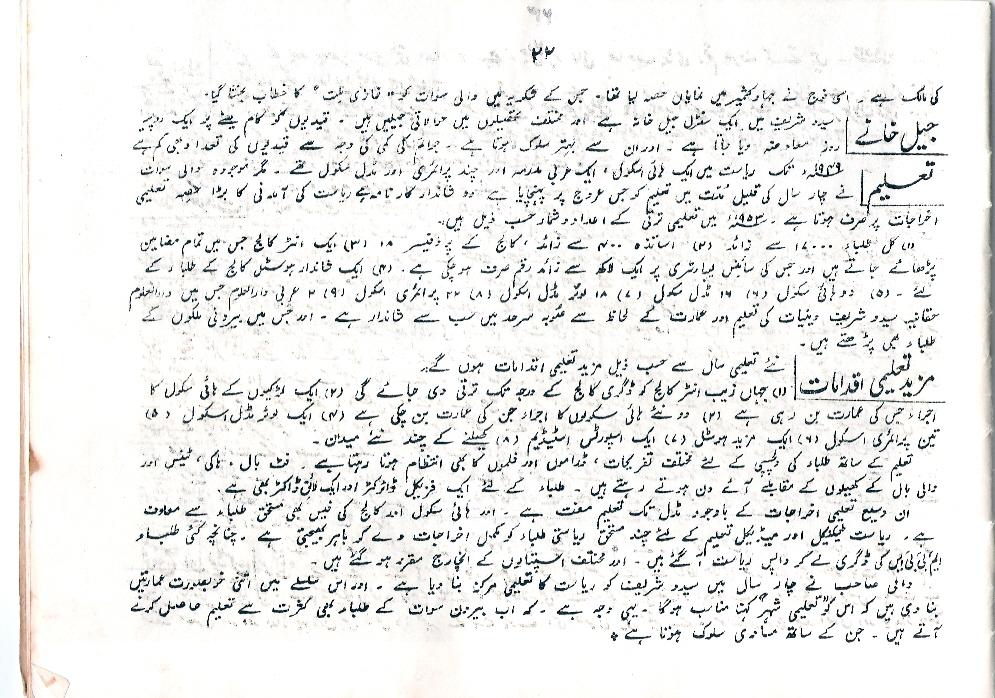 ۲۲
کی مالک ہے ۔ اسی فوج نے جہاد کشمیر میں نمایاں حصہ لیا تھا ۔ جس کے شکریہ میں والی سوات کو "غازی ملت" کا خطاب بخشا گیا۔
جیل خانے
سیدو شریف میں ایک سنٹرل جیل خانہ ہے اور مختلف تحصیلوں میں حوالاتی جیلیں ہیں ۔ قیدیوں کو کام پینے پر ایک روپیہ
روز معاوضہ دیا جاتا ہے ۔ اور ان سے بہتر سلوک ہوتا ہے ۔ جرائم کی کمی کی وجہ سے قیدیوں کی تعداد بھی کم ہے
تعلیم
۱۹۴۹ء تک ریاست میں ایک ہائی اسکول، ایک عربی مدرسہ اور چند پرائمری اور مڈل سکول تھے ۔ مگر موجودہ والی سوات
نے چار سال کی قلیل مدت میں تعلیم کو جس عروج پر پہنچایا ہے وہ شاندار کارنامہ ہے ریاست کی آمدنی کا بڑا حصہ تعلیمی
اخراجات پر صرف ہوتا ہے ۔ ۱۹۵۳ء میں تعلیمی ترقی کے اعداد و شمار حسب ذیل ہیں۔
(۱) کل طلباء ۱۷۰۰۰ سے زائد (۲) اساتذہ ۴۰۰ سے زائد، کالج کے پروفیسر ۱۸ (۳) ایک انٹر کالج جس میں تمام مضامین
پڑھائے جاتے ہیں اور جس کی سائنس لیبارٹری پر ایک لاکھ سے زائد رقم صرف ہو چکی ہے ۔ (۴) ایک شاندار ہوسٹل کالج کے طلباء کے
لئے ۔ (۵) دو ہائی سکول (۶) ۱۶ مڈل سکول (۷) ۱۸ لوئر مڈل اسکول (۸) ۲۲ پرائمری اسکول (۹) ۲ عربی دارالعلوم جس میں دارالعلوم
حقانیہ سیدو شریف دینیات کی تعلیم اور عمارت کے لحاظ سے صوبہ سرحد میں سب سے شاندار ہے ۔ اور جس میں بیرونی ملکوں کے
طلباء بھی پڑھتے ہیں ۔
مزید تعلیمی اقدامات
نئے تعلیمی سال سے حسب ذیل مزید تعلیمی اقدامات ہوں گے۔
(۱) جہاں زیب انٹر کالج کو ڈگری کالج کے درجہ تک ترقی دی جائے گی (۲) ایک لڑکیوں کے ہائی سکول کا
اجراء جس کی عمارت بن رہی ہے (۳) دو نئے ہائی سکولوں کا اجراء جن کی عمارت بن چکی ہے (۴) ایک لوئر مڈل اسکول (۵)
تین پرائمری اسکول (۶) ایک مزید ہوسٹل (۷) ایک اسپورٹس اسٹیڈیم (۸) کھیلنے کے چند نئے میدان ۔
تعلیم کے ساتھ طلباء کی دلچسپی کے لئے مختلف تفریحات، ڈراموں اور فلموں کا بھی انتظام ہوتا رہتا ہے ۔ فٹ بال ۔ ہاکی، ٹینس اور
والی بال کے کھیلوں کے مقابلے آئے دن ہوتے رہتے ہیں ۔ طلباء کے لئے ایک فزیکل ڈائرکٹر اور ایک لائق ڈاکٹر بھی ہے
ان وسیع تعلیمی اخراجات کے باوجود مڈل تک تعلیم مفت ہے ۔ اور ہائی سکول اور کالج کی فیس بھی مستحق طلباء سے معاف
ہے ۔ ریاست ٹیکنیکل اور میڈیکل تعلیم کے لئے چند مستحق ریاستی طلباء کو مکمل اخراجات دے کر باہر بھیجتی ہے ۔ چنانچہ کئی طلباء
ایم بی بی ایس کی ڈگری لے کر واپس ریاست آ گئے ہیں ۔ اور مختلف اسپتالوں کے انچارج مقرر ہو گئے ہیں ۔
والی صاحب نے چار سال میں سیدو شریف کو ریاست کا تعلیمی مرکز بنا دیا ہے ۔ اور اس سلسلے میں اتنی خوبصورت عمارتیں
بنا دی ہیں کہ اس کو "تعلیمی شہر" کہنا مناسب ہوگا ۔ یہی وجہ ہے ۔ کہ اب بیرون سوات کے طلباء بھی کثرت سے تعلیم حاصل کرنے
آتے ہیں ۔ جن کے ساتھ مساوی سلوک ہوتا ہے *